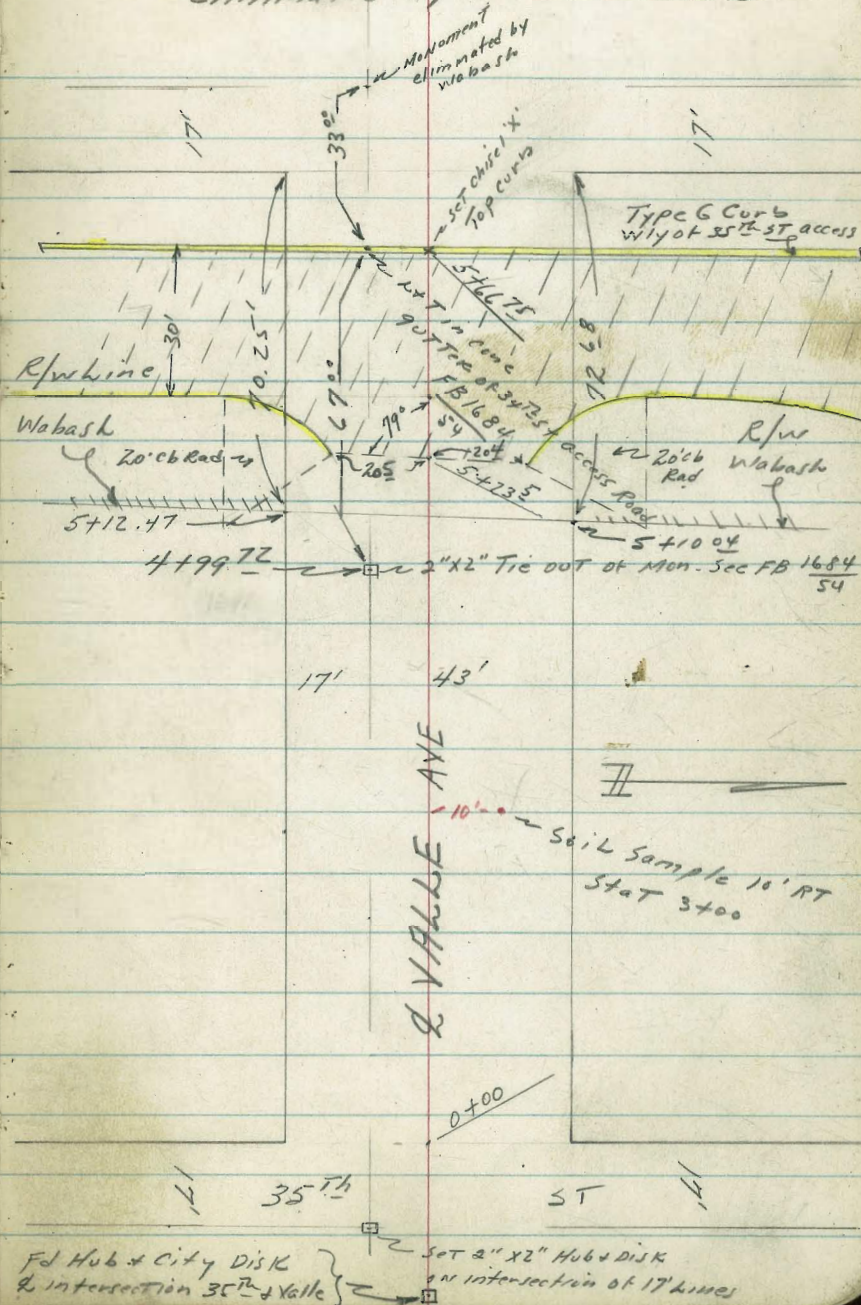 Monument
eliminated by
Wabash
17'
33⁰⁰
17'
SET Chisel 'x'
Top Curb
Type G Curb
W'ly of 35Th ST access
5+66 75
30'
70.25
67⁰⁰
72 68
L&T in conc
gutter of 34Th ST access Road
FB 1684
54
R/W Line
Wabash
20' cb Rad
79⁰
20 5
20 4
5+23 5
20' cb
Rad
R/W
Wabash
5+12.47
5+10 04
4+99 72
2"x2" Tie out of Mon. See FB 1684
54
17'
43'
℄ VALLE AVE
10'
Soil Sample 10' RT
StaT 3+00
0+00
17'
35Th
ST
17'
Fd Hub & City Disk
℄ intersection 35Th & Valle
SET 2"x2" Hub & Disk
in intersection of 17' Lines